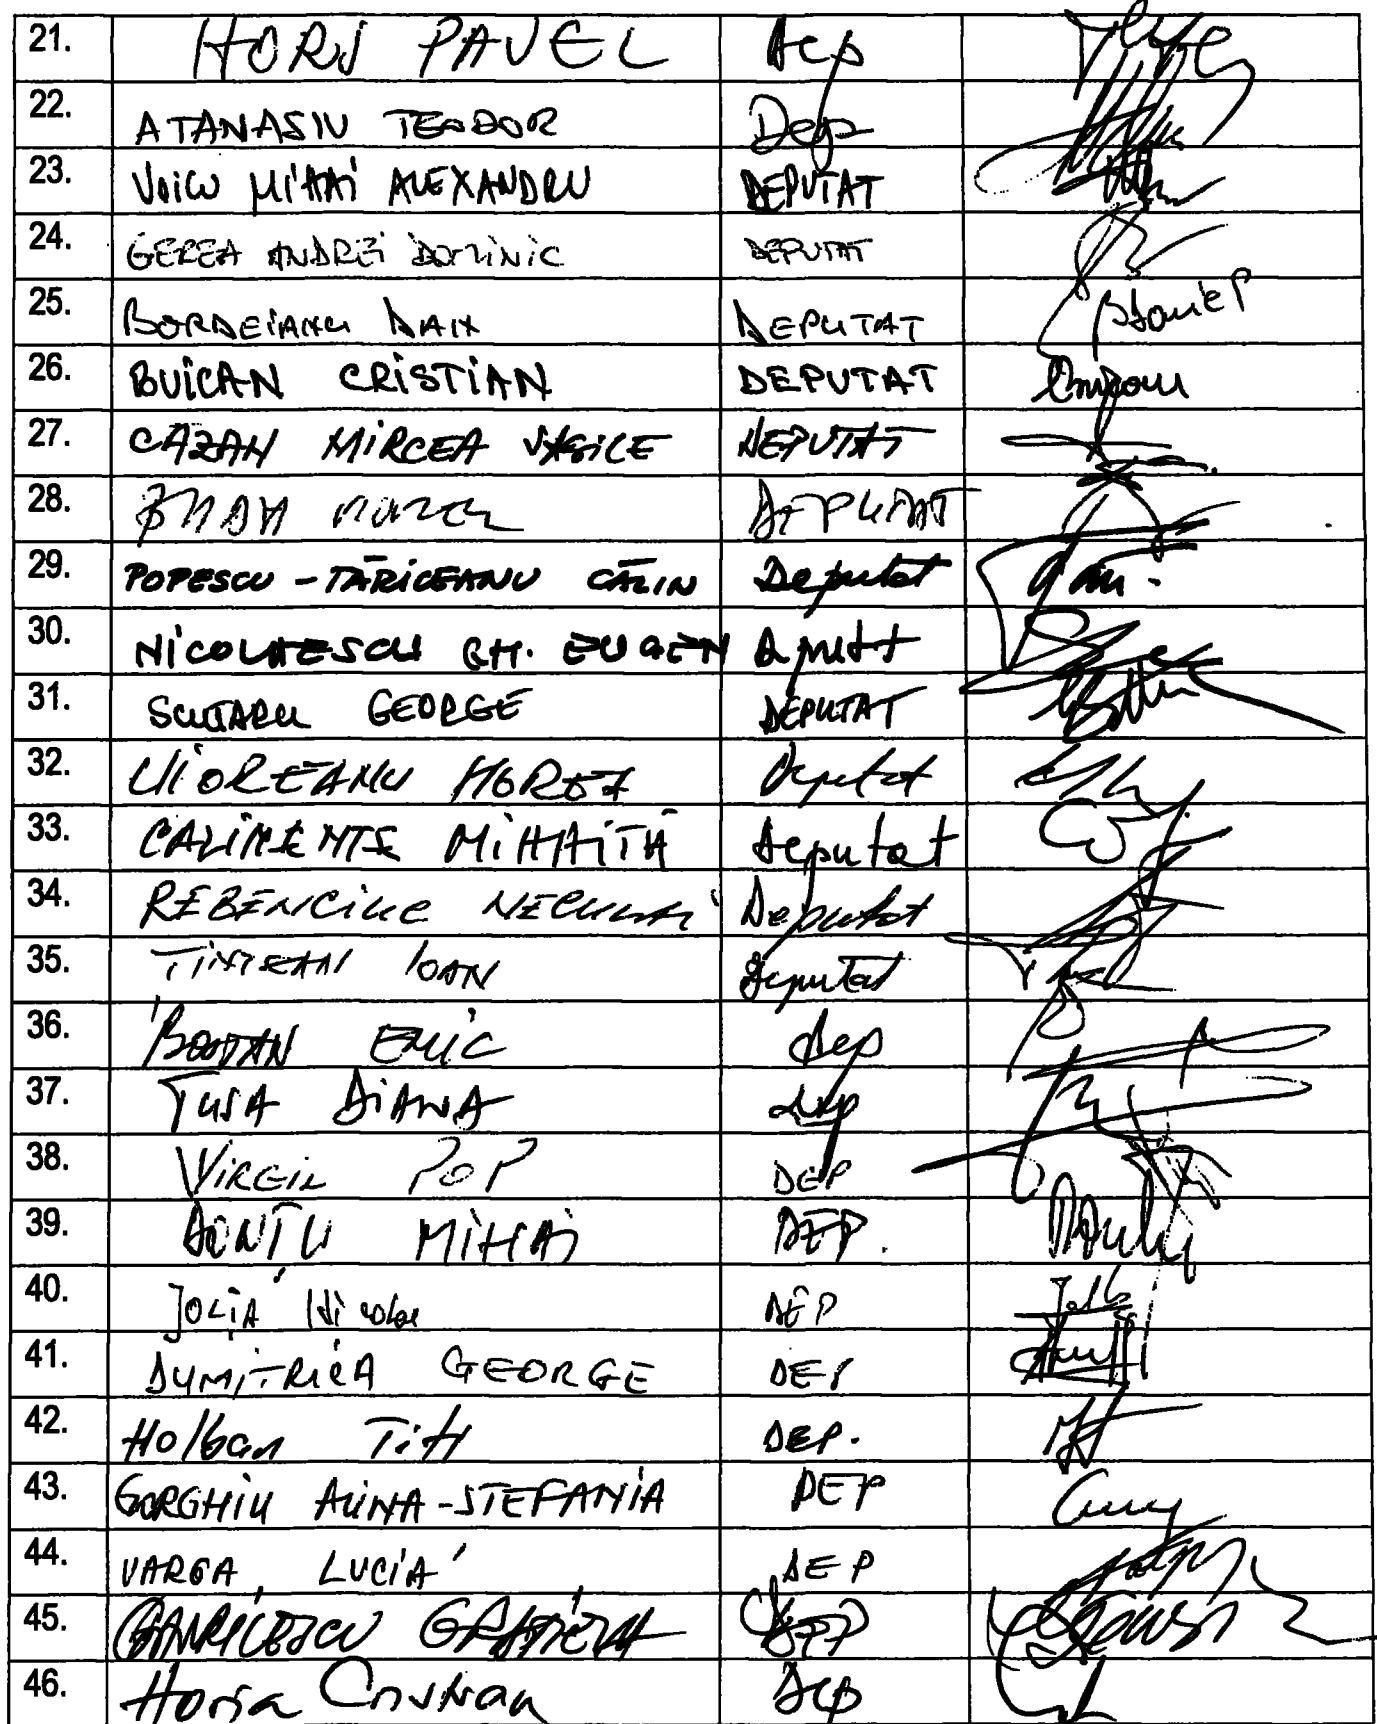 21. HORJ PAVEL Dep
22. ATANASIU TEODOR Dep
23. VOICU MIHAI ALEXANDRU DEPUTAT
24. GEREA ANDREI DOMINIC DEPUTAT
25. BORDEIANU DAN DEPUTAT
26. BUICAN CRISTIAN DEPUTAT
27. CAZAN MIRCEA VASILE DEPUTAT
28. DEPUTAT
29. POPESCU-TĂRICEANU CĂLIN Deputat
30. NICOLAESCU GH. EUGEN
31. SCUTARU GEORGE DEPUTAT
32. UIOREANU HOREA Deputat
33. CALIMENTE MIHĂIȚĂ Deputat
34. REBENCIUC NECULAI Deputat
35. TIMIȘAN IOAN Deputat
36. Dep
37. TUȘA DIANA Dep
38. VIRGIL POP DEP
39. DONȚU MIHAI DEP.
40. JOLȚA Nicolae DEP
41. DUMITRICA GEORGE DEP
42. Holban Titi DEP.
43. GORGHIU ALINA-STEFANIA DEP
44. VARGA LUCIA DEP
45. GAVRILESCU GRAȚIELA
46. Horia Cristian Dep